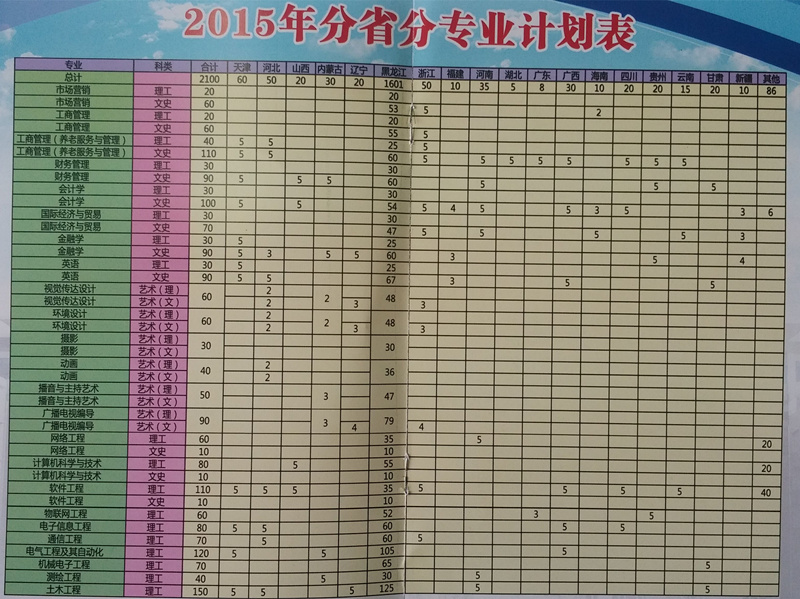 2015年分省分专业计划表
专业 科类 合计 天津 河北 山西 内蒙古 辽宁 黑龙江 浙江 福建 河南 湖北 广东 广西 海南 四川 贵州 云南 甘肃 新疆 其他
总计 2100 60 50 20 30 20 1601 50 10 35 5 8 30 10 20 20 15 20 10 86
市场营销 理工 20 20
市场营销 文史 60 53 5 2
工商管理 理工 20 20
工商管理 文史 60 55 5
工商管理（养老服务与管理） 理工 40 5 5 25 5
工商管理（养老服务与管理） 文史 110 5 5 60 5 5 5 5 5 5 5 5
财务管理 理工 30 30
财务管理 文史 90 5 5 5 60 5 5 5
会计学 理工 30 30
会计学 文史 100 5 5 54 5 4 5 5 3 5 3 6
国际经济与贸易 理工 30 30
国际经济与贸易 文史 70 47 5 5 5 5 3
金融学 理工 30 5 25
金融学 文史 90 5 3 5 5 60 3 5 4
英语 理工 30 5 25
英语 文史 90 5 5 67 3 5 5
视觉传达设计 艺术（理） 60 2 2 48
视觉传达设计 艺术（文） 2 3 3
环境设计 艺术（理） 60 2 2 48
环境设计 艺术（文） 2 3 3
摄影 艺术（理） 30 30
摄影 艺术（文）
动画 艺术（理） 40 2 36
动画 艺术（文） 2
播音与主持艺术 艺术（理） 50 3 47
播音与主持艺术 艺术（文）
广播电视编导 艺术（理） 90 3 79
广播电视编导 艺术（文） 4 4
网络工程 理工 60 35 5 20
网络工程 文史 10 10
计算机科学与技术 理工 80 5 55 20
计算机科学与技术 文史 10 10
软件工程 理工 110 5 5 5 35 5 5 5 5 40
软件工程 文史 10 10
物联网工程 理工 60 52 3 5
电子信息工程 理工 80 5 5 60 5 5
通信工程 理工 70 5 60 5
电气工程及其自动化 理工 120 5 5 105 5
机械电子工程 理工 70 65 5
测绘工程 理工 40 5 30 5
土木工程 理工 150 5 5 5 125 5 5